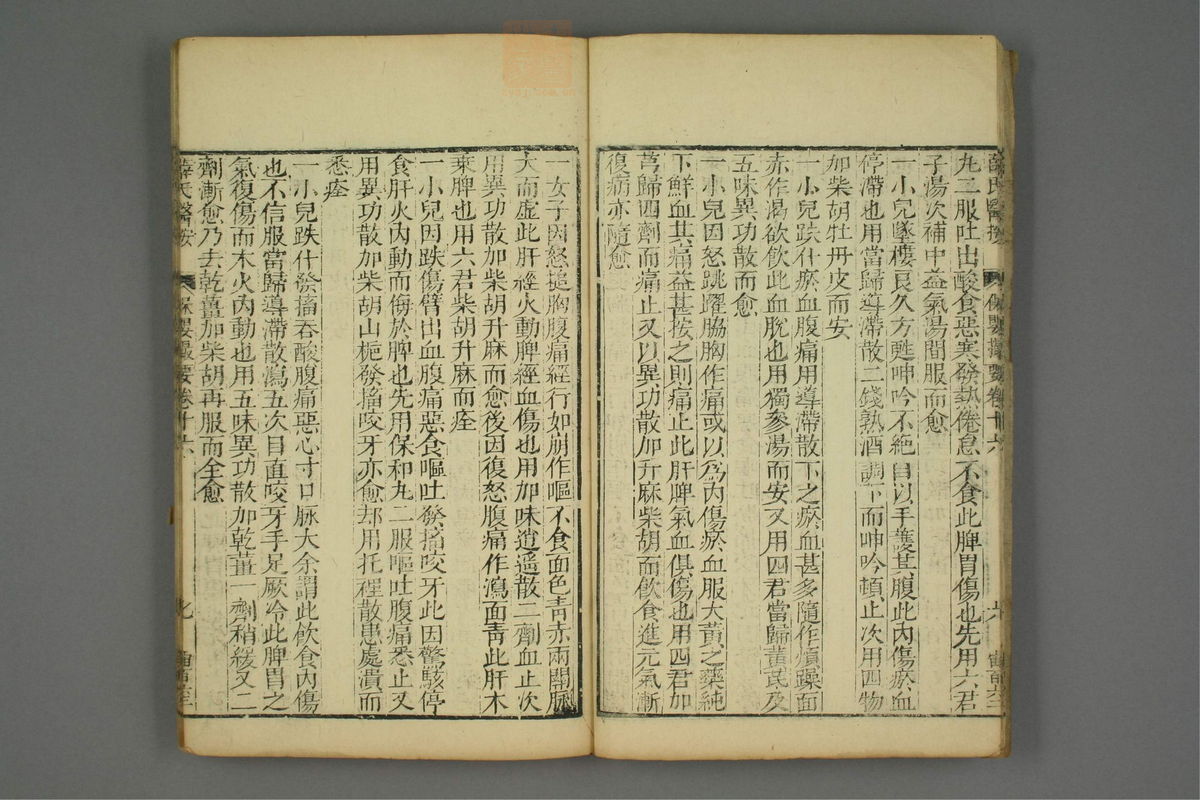 薛氏醫按 保嬰撮要卷十六 六
丸二服吐出酸食惡寒發熱倦怠不食此脾胃傷也先用六君
子湯次補中益氣湯間服而愈
一小兒墜樓良久方甦呻吟不絕自以手護其腹此內傷瘀血
停滯也用當歸導滯散二錢熟酒調下而呻吟頓止次用四物
加柴胡牡丹皮而安
一小兒跌仆瘀血腹痛用導滯散下之瘀血甚多隨作煩躁面
赤作渴欲飲此血脫也用獨參湯而安又用四君當歸黃芪及
五味異功散而愈
一小兒因怒跳躍脇胸作痛或以為內傷瘀血服大黃之藥純
下鮮血其痛益甚按之則痛止此肝脾氣血俱傷也用四君加
芎歸四劑而痛止又以異功散加升麻柴胡而飲食進元氣漸
復病亦隨愈
一女子因怒搥胸腹痛經行如崩作嘔不食面色青赤兩關脈
大而虛此肝經火動脾經血傷也用加味逍遙散二劑血止次
用異功散加柴胡升麻而愈後因復怒腹痛作瀉面青此肝木
乘脾也用六君柴胡升麻而痊
一小兒因跌傷臂出血腹痛惡食嘔吐發搐咬牙此因驚駭停
食肝火內動而侮於脾也先用保和丸二服嘔吐腹痛悉止又
用異功散加柴胡山梔發搐咬牙亦愈却用托裡散患處潰而
悉痊
一小兒跌仆發搐吞酸腹痛惡心寸口脈大余謂此飲食內傷
也不信服當歸導滯散瀉五次目直咬牙手足厥冷此脾胃之
氣復傷而木火內動也用五味異功散加乾薑一劑稍緩又二
劑漸愈乃去乾薑加柴胡再服而全愈
薛氏醫按 保嬰撮要卷十六